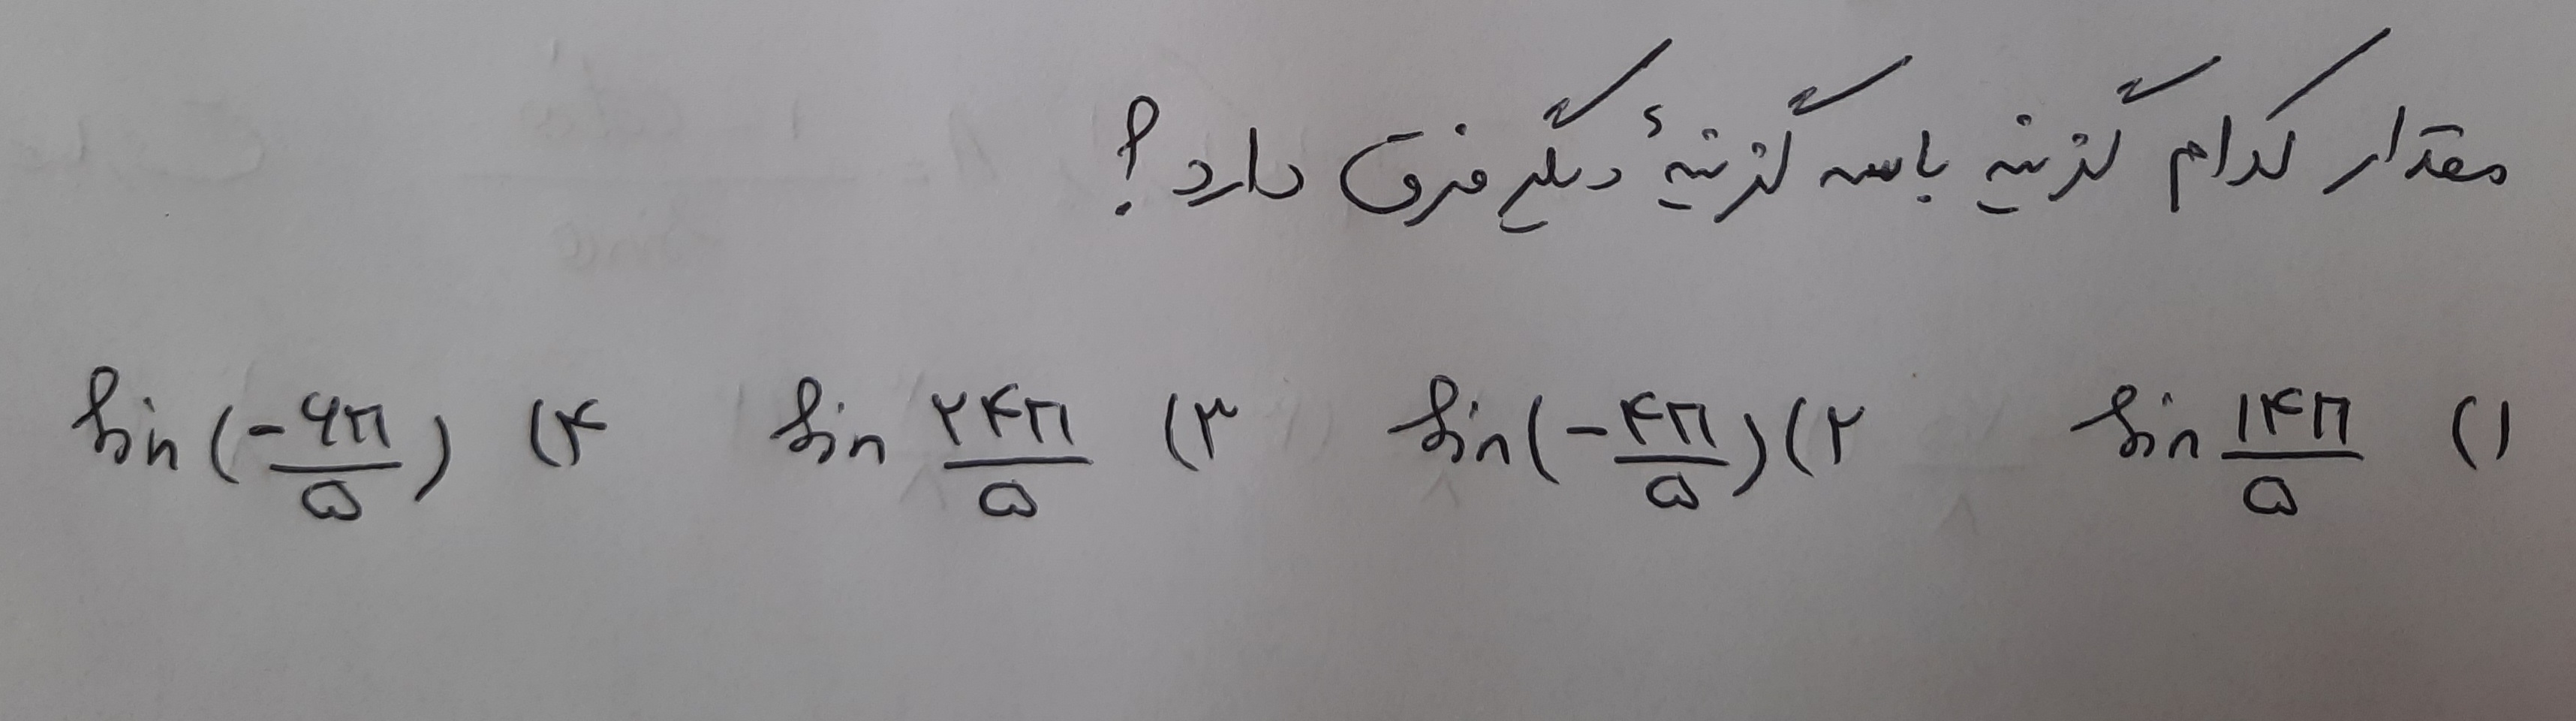 مقدار کدام گزینه با سه گزینهٔ دیگر فرق دارد؟
۱) sin ۱۴π/۵ ۲) sin(-۴π/۵) ۳) sin ۲۴π/۵ ۴) sin(-۶π/۵)